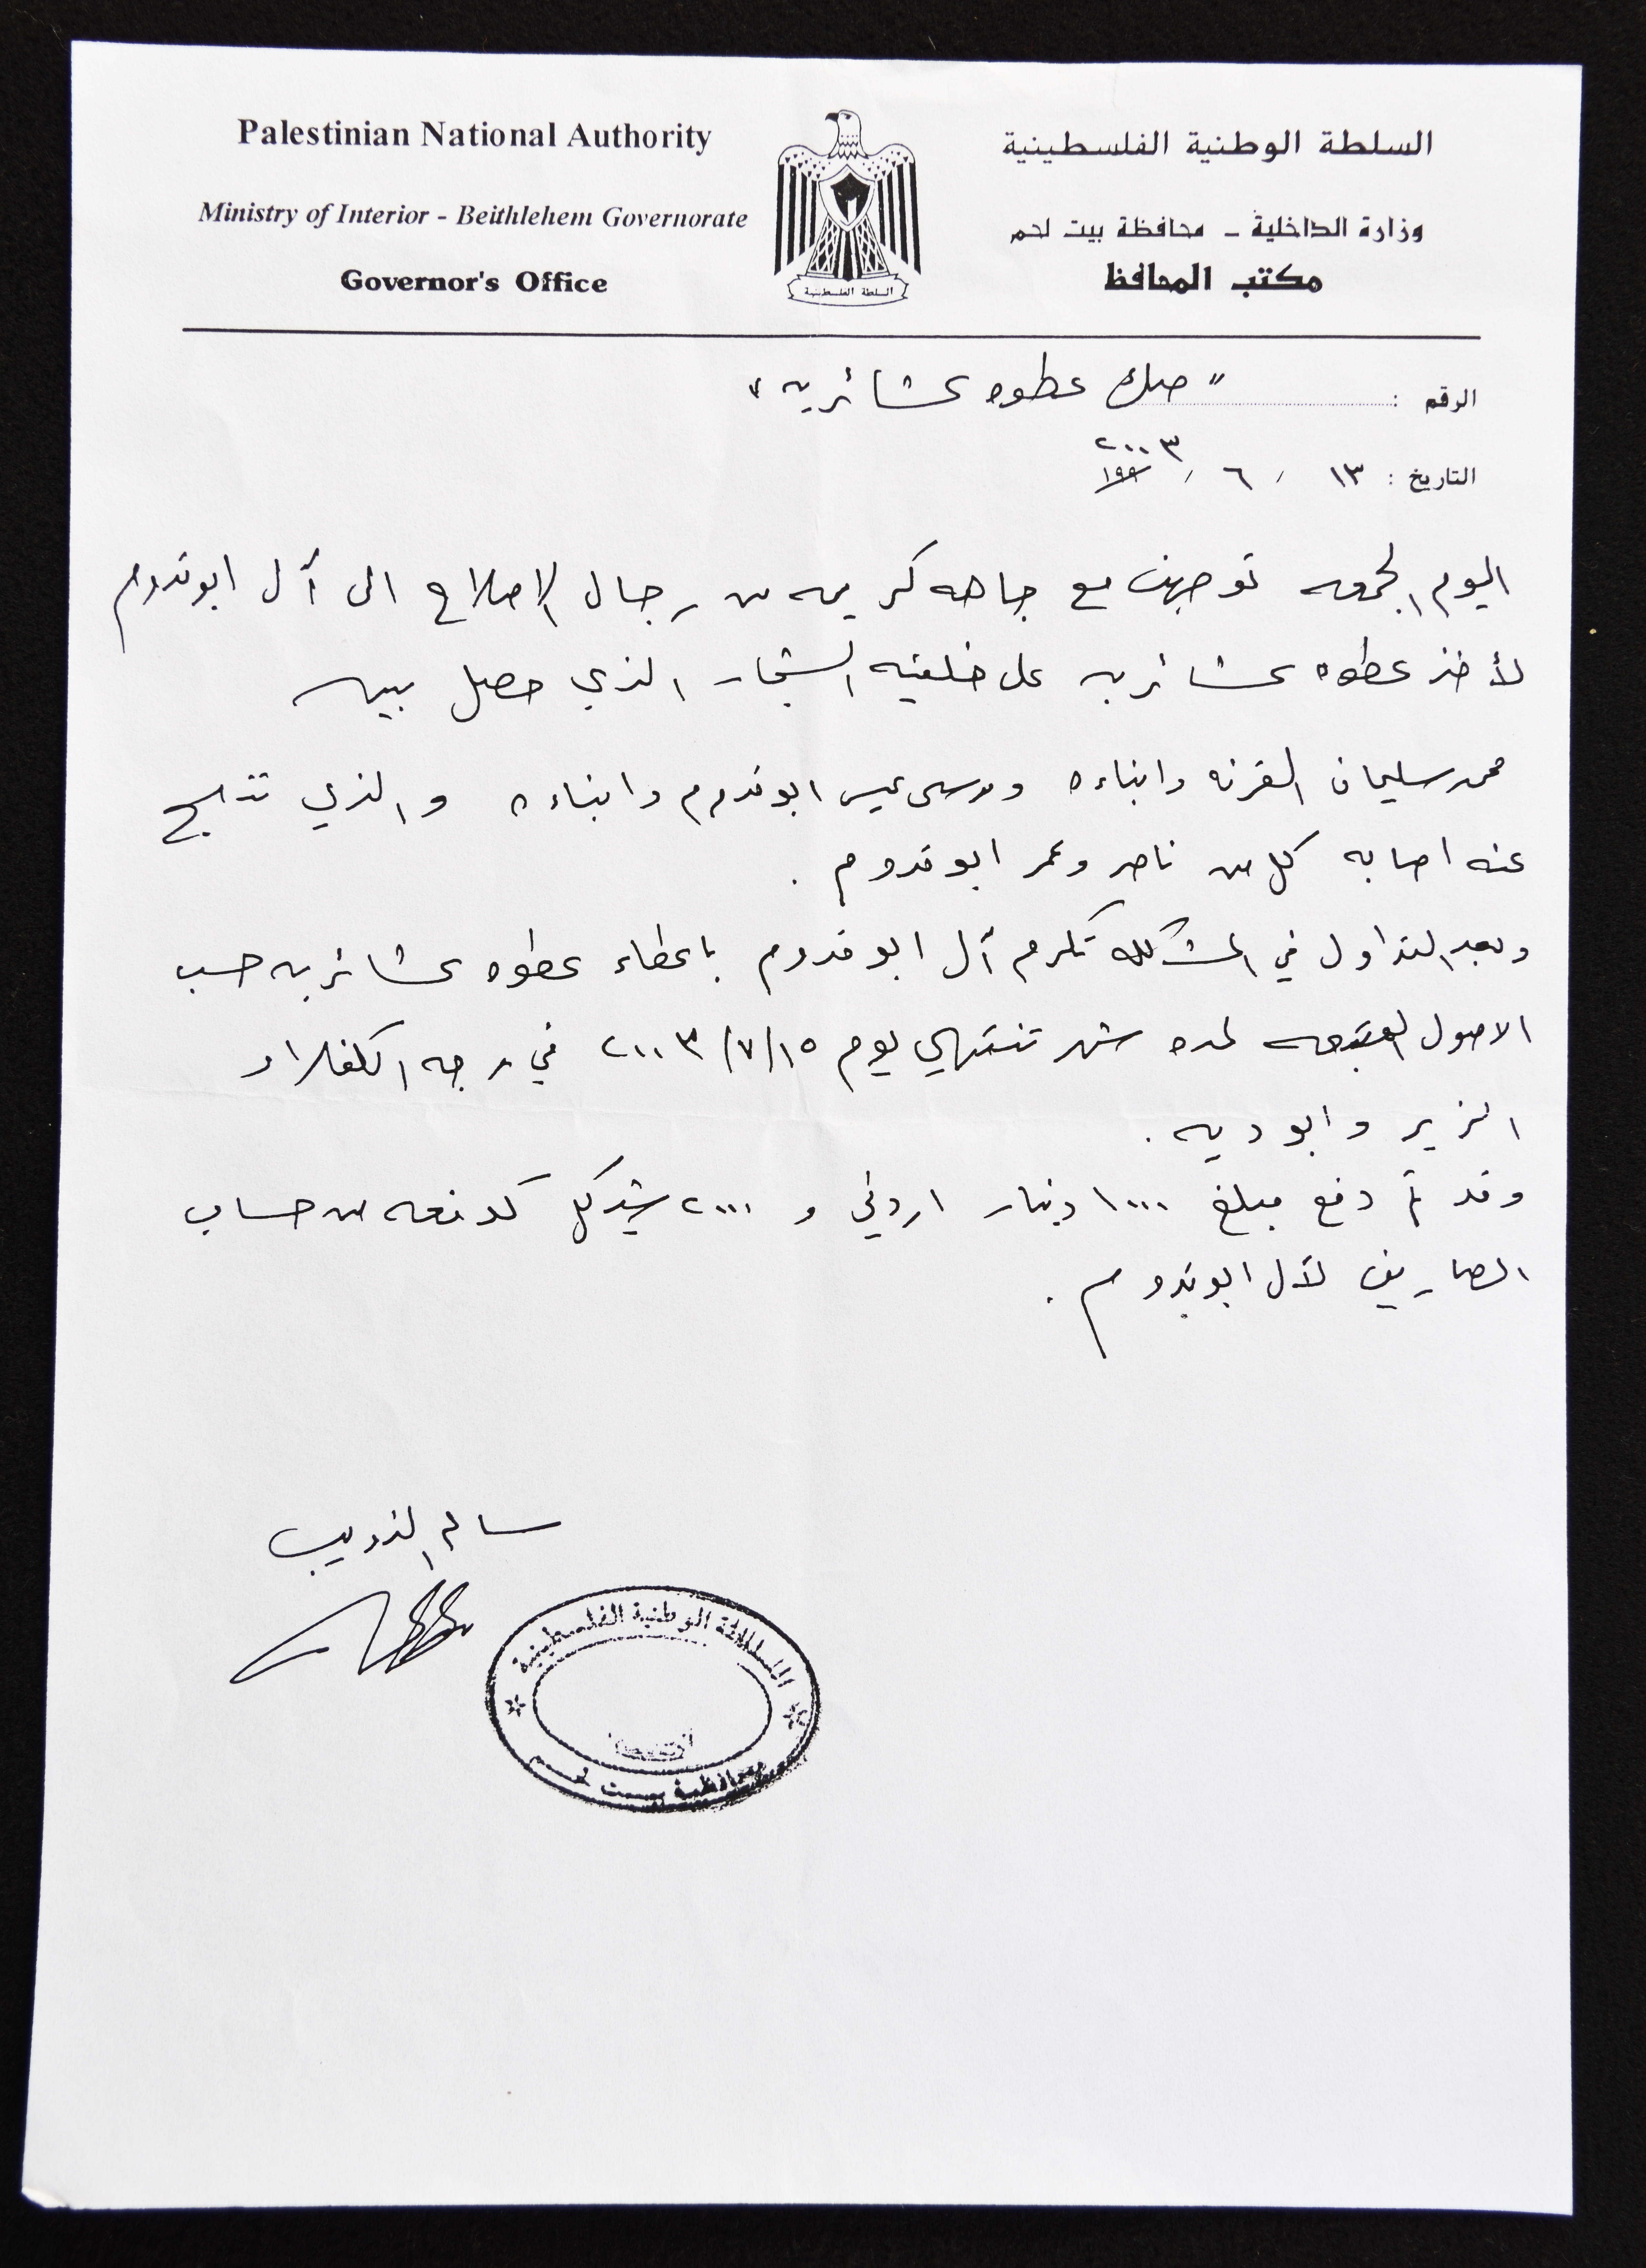 Palestinian National Authority
Ministry of Interior - Beithlehem Governorate
Governor's Office
السلطة الوطنية الفلسطينية
وزارة الداخلية - محافظة بيت لحم
مكتب المحافظ
السلطة الفلسطينية
الرقم : "صك عطوه عشائريه"
التاريخ : ١٣ / ٦ / ١٩٩ ٢٠٠٣
اليوم الجمعه توجهت مع جاهه كريمه من رجال الاصلاح الى آل ابو قدوم
لأخذ عطوه عشائريه على خلفيه الشجار الذي حصل بين
محمد سليمان القرنه وابناءه وموسى عيسى ابو قدوم وابناءه والذي نتج
عنه اصابه كل من ناصر وعمر ابو قدوم .
وبعد التداول في المشكله تكرم آل ابو قدوم باعطاء عطوه عشائريه حسب
الاصول المتبعه لمده شهر تنتهي يوم ١٥/٧/٢٠٠٣ في وجه الكفلاء
الزير وابو ديه .
وقد تم دفع مبلغ ١٠٠٠ دينار اردني و ٢٠٠٠ شيكل كدفعه من حساب
المصاريف لآل ابو قدوم .
سالم الذويب
السلطة الوطنية الفلسطينية
محافظة بيت لحم